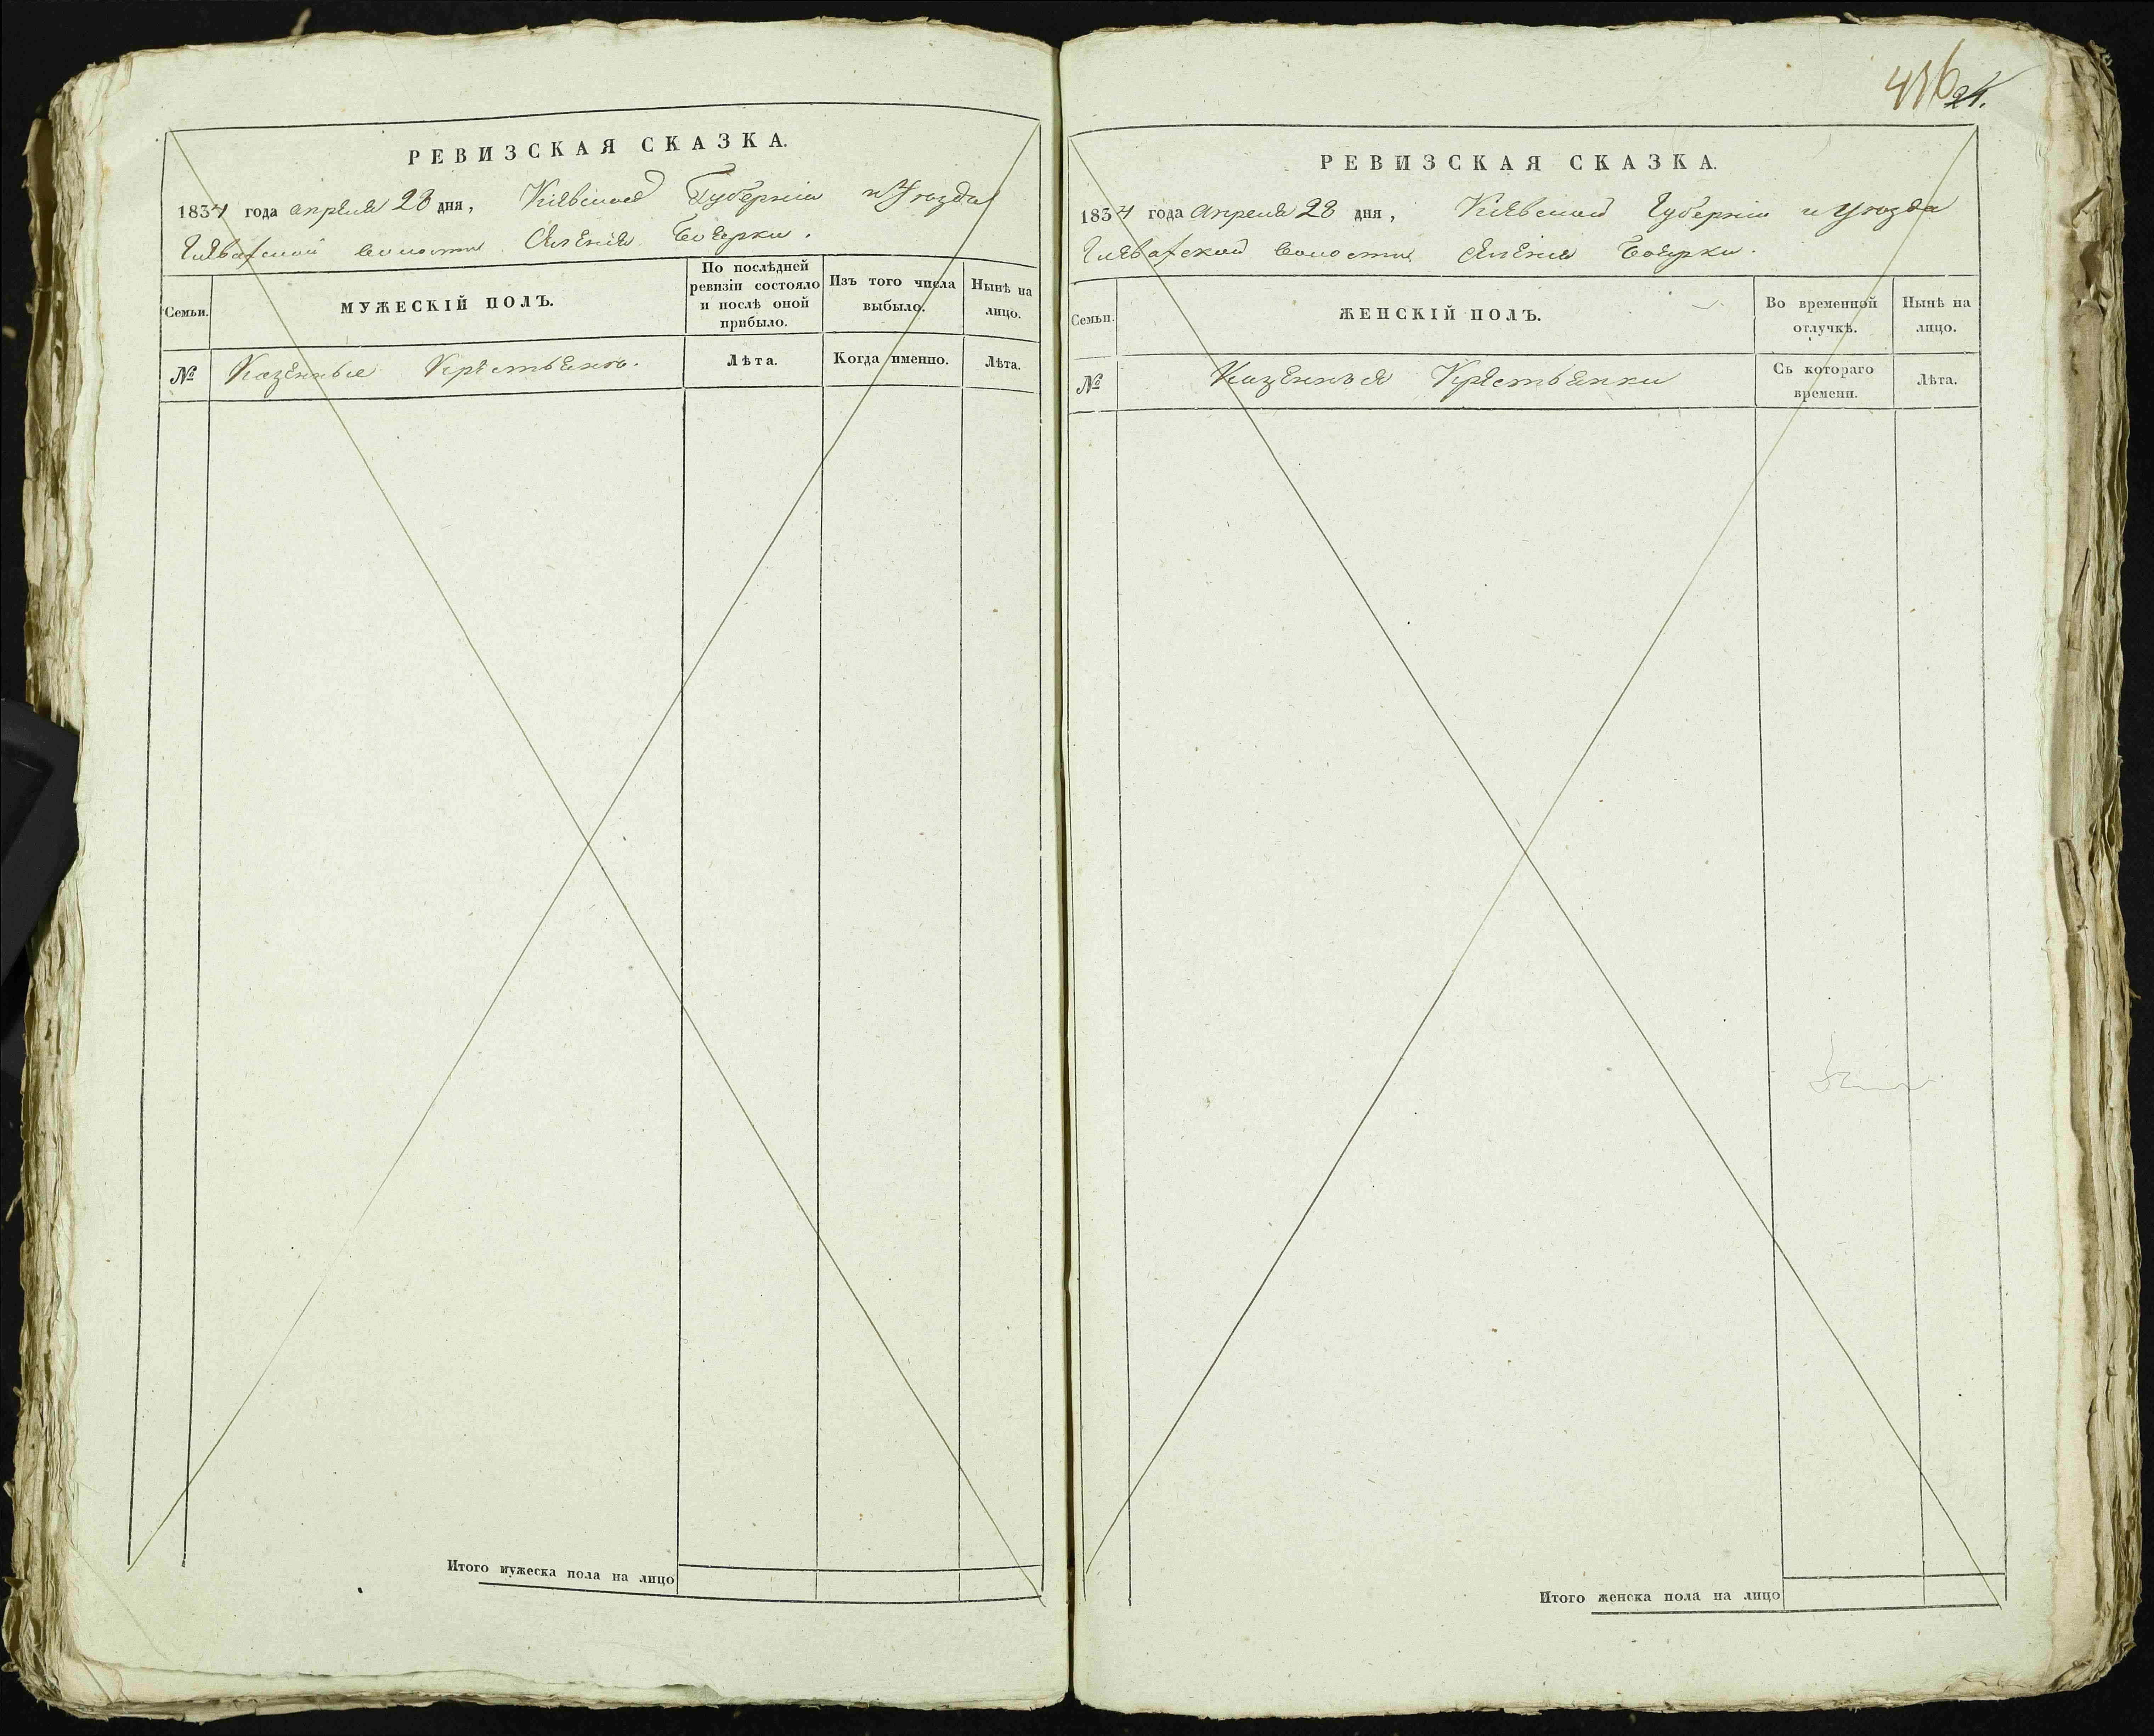 РЕВИЗСКАЯ СКАЗКА.
1834 года апреля 28 дня, Кіевской Губерніи и Уезда
Гвоздовской волости Селенія Боярки.
Семьи.
МУЖЕСКІЙ ПОЛЪ.
По послѣдней ревизіи состояло и послѣ оной прибыло.
Изъ того числа выбыло.
Нынѣ на лицо.
№
Казенные Крестьяне.
Лѣта.
Когда именно.
Лѣта.
Итого мужеска пола на лицо
24.
РЕВИЗСКАЯ СКАЗКА.
1834 года апреля 28 дня, Кіевской Губерніи и Уезда
волости Селенія Боярки.
Семьи.
ЖЕНСКІЙ ПОЛЪ.
Во временной отлучкѣ.
Нынѣ на лицо.
№
Казенныя Крестьянки
Съ котораго времени.
Лѣта.
Итого женска пола на лицо